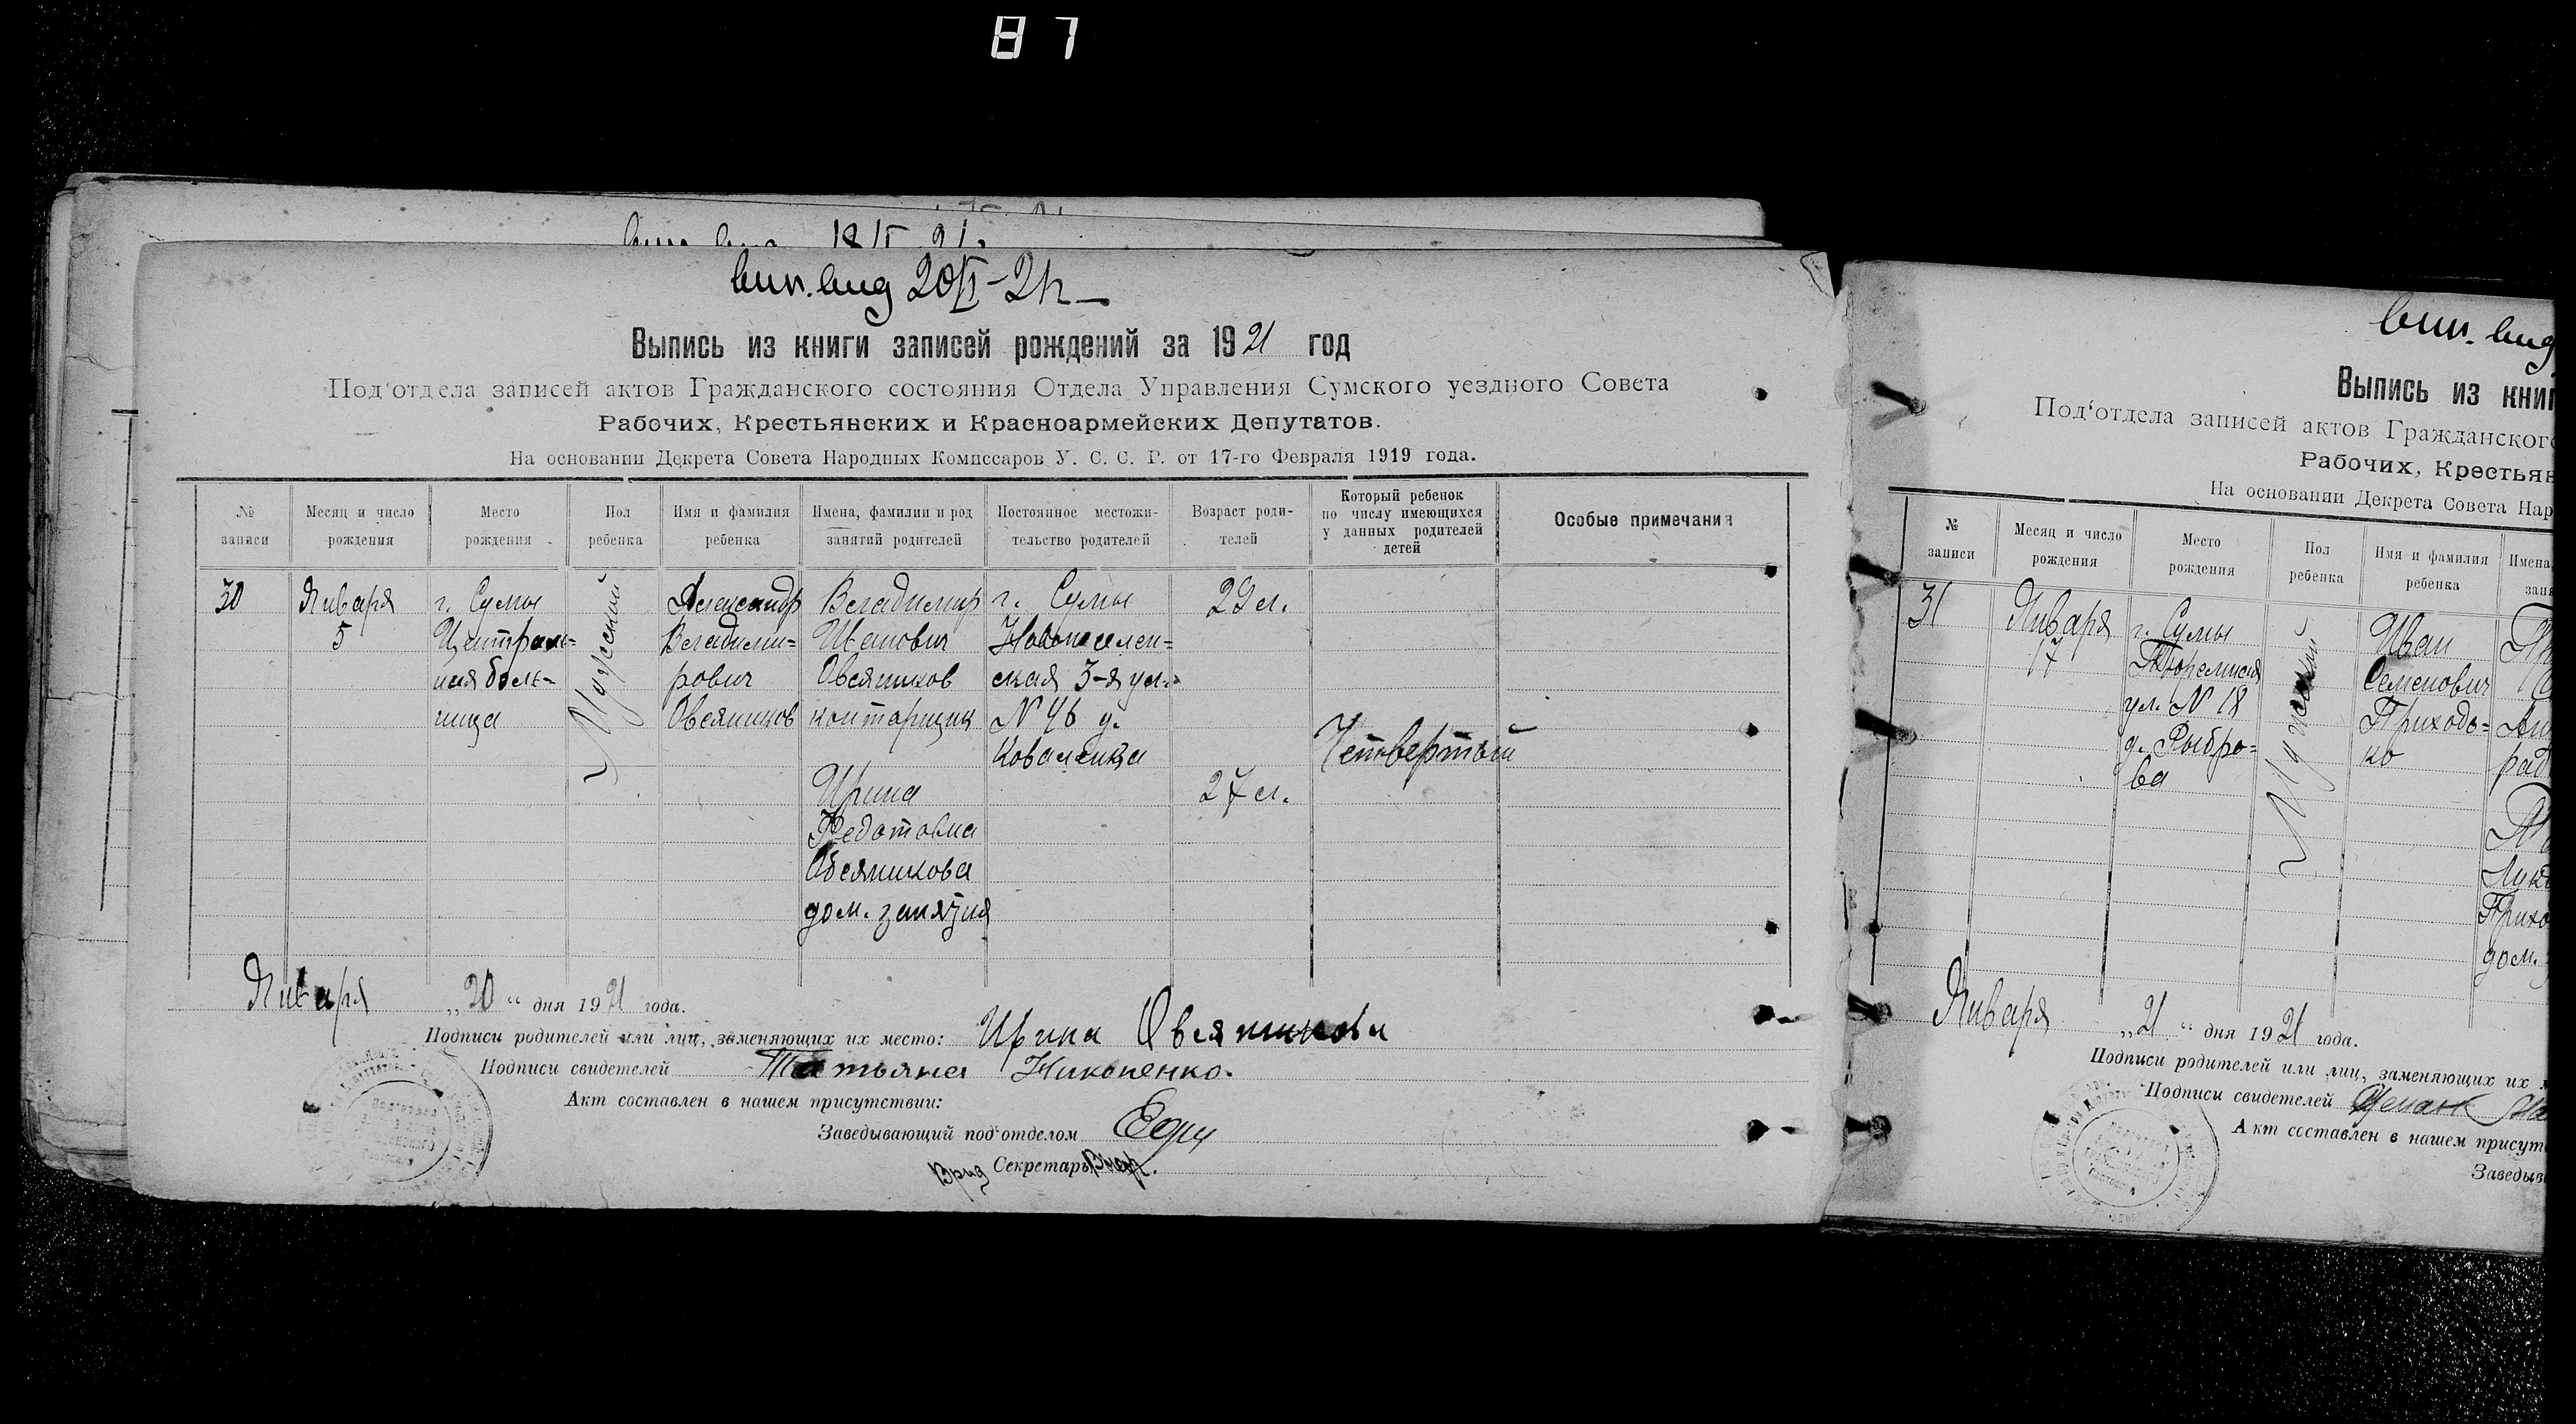 87
вып. выд 20/I-21 г.
Выпись из книги записей рождений за 1921 год
Под'отдела записей актов Гражданского состояния Отдела Управления Сумского уездного Совета
Рабочих, Крестьянских и Красноармейских Депутатов.
На основании Декрета Совета Народных Комиссаров У. С. С. Р. от 17-го Февраля 1919 года.
№ записи
Месяц и число рождения
Место рождения
Пол ребенка
Имя и фамилия ребенка
Имена, фамилии и род занятий родителей
Постоянное местожи-
тельство родителей
Возраст роди-
телей
Который ребенок
по числу имеющихся
у данных родителей
детей
Особые примечания
30
Января
5
г. Сумы
Централь-
ная боль-
ница
Мужской
Александр
Владими-
рович
Овсяников
Владимир
Иванович
Овсяников
конторщик
Ирина
Федотовна
Овсяникова
дом. занятия
г. Сумы
Новопоселен-
ская 3-я ул.
N 46 д.
Коваленка
29 л.
27 л.
Четвертый
Января „20“ дня 1921 года.
Подписи родителей или лиц, заменяющих их место: Ирина Овсяникова
Подписи свидетелей Татьяна Никоненко.
Акт составлен в нашем присутствии:
Заведывающий под'отделом
Врид Секретарь
вып. выд
Выпись из книг
Под'отдела записей актов Гражданског
Рабочих, Крестьян
На основании Декрета Совета Нар
№ записи
Месяц и число
рождения
Место
рождения
Пол
ребенка
Имя и фамилия
ребенка
Имена,
31
Января
17
г. Сумы
Тюремная
ул. N 18
д. Рыбро-
ва
Мужской
Иван
Семенович
Приходь-
ко
дом.
Января „21“ дня 1921 года.
Подписи родителей или лиц, заменяющих их
Подписи свидетелей
Акт составлен в нашем присут
Заведыв